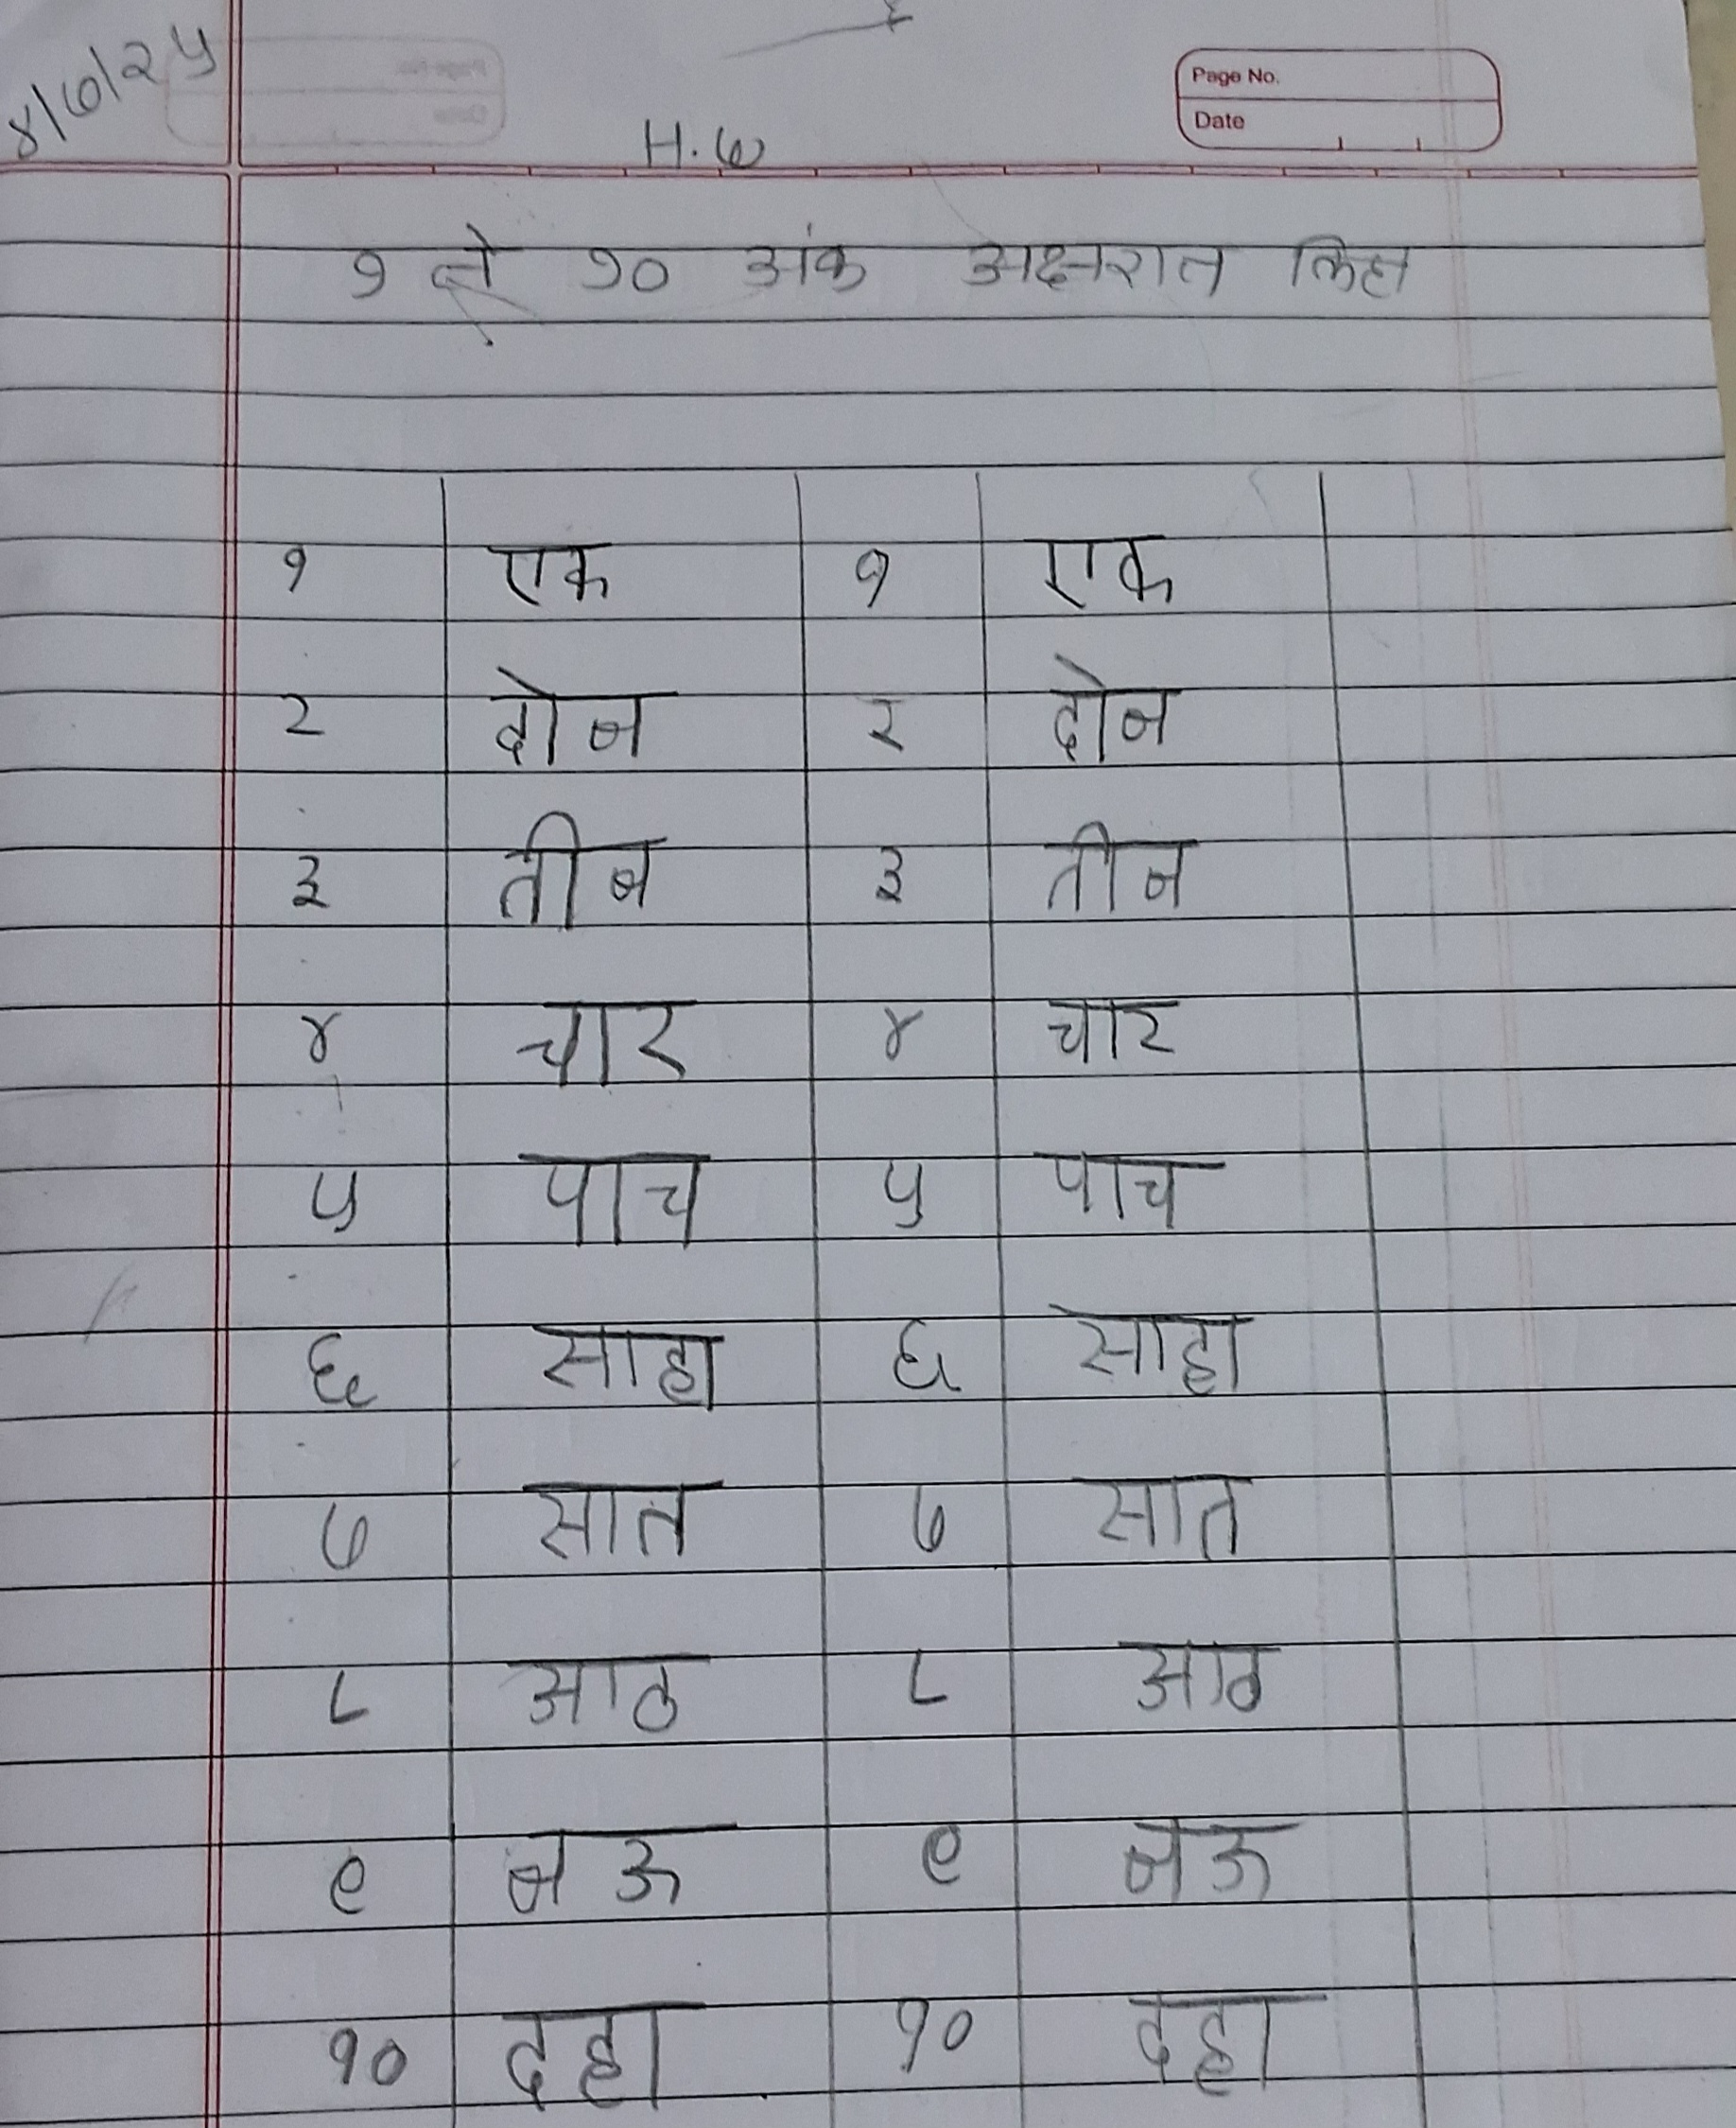 ४/७/२५
Page No.
Date
H.W
१ ते १० अंक अक्षरात लिहा
१ एक १ एक
२ दोन २ दोन
३ तीन ३ तीन
४ चार ४ चार
५ पाच ५ पाच
६ साहा ६ साहा
७ सात ७ सात
८ आठ ८ आठ
९ नऊ ९ नऊ
१० दहा १० दहा